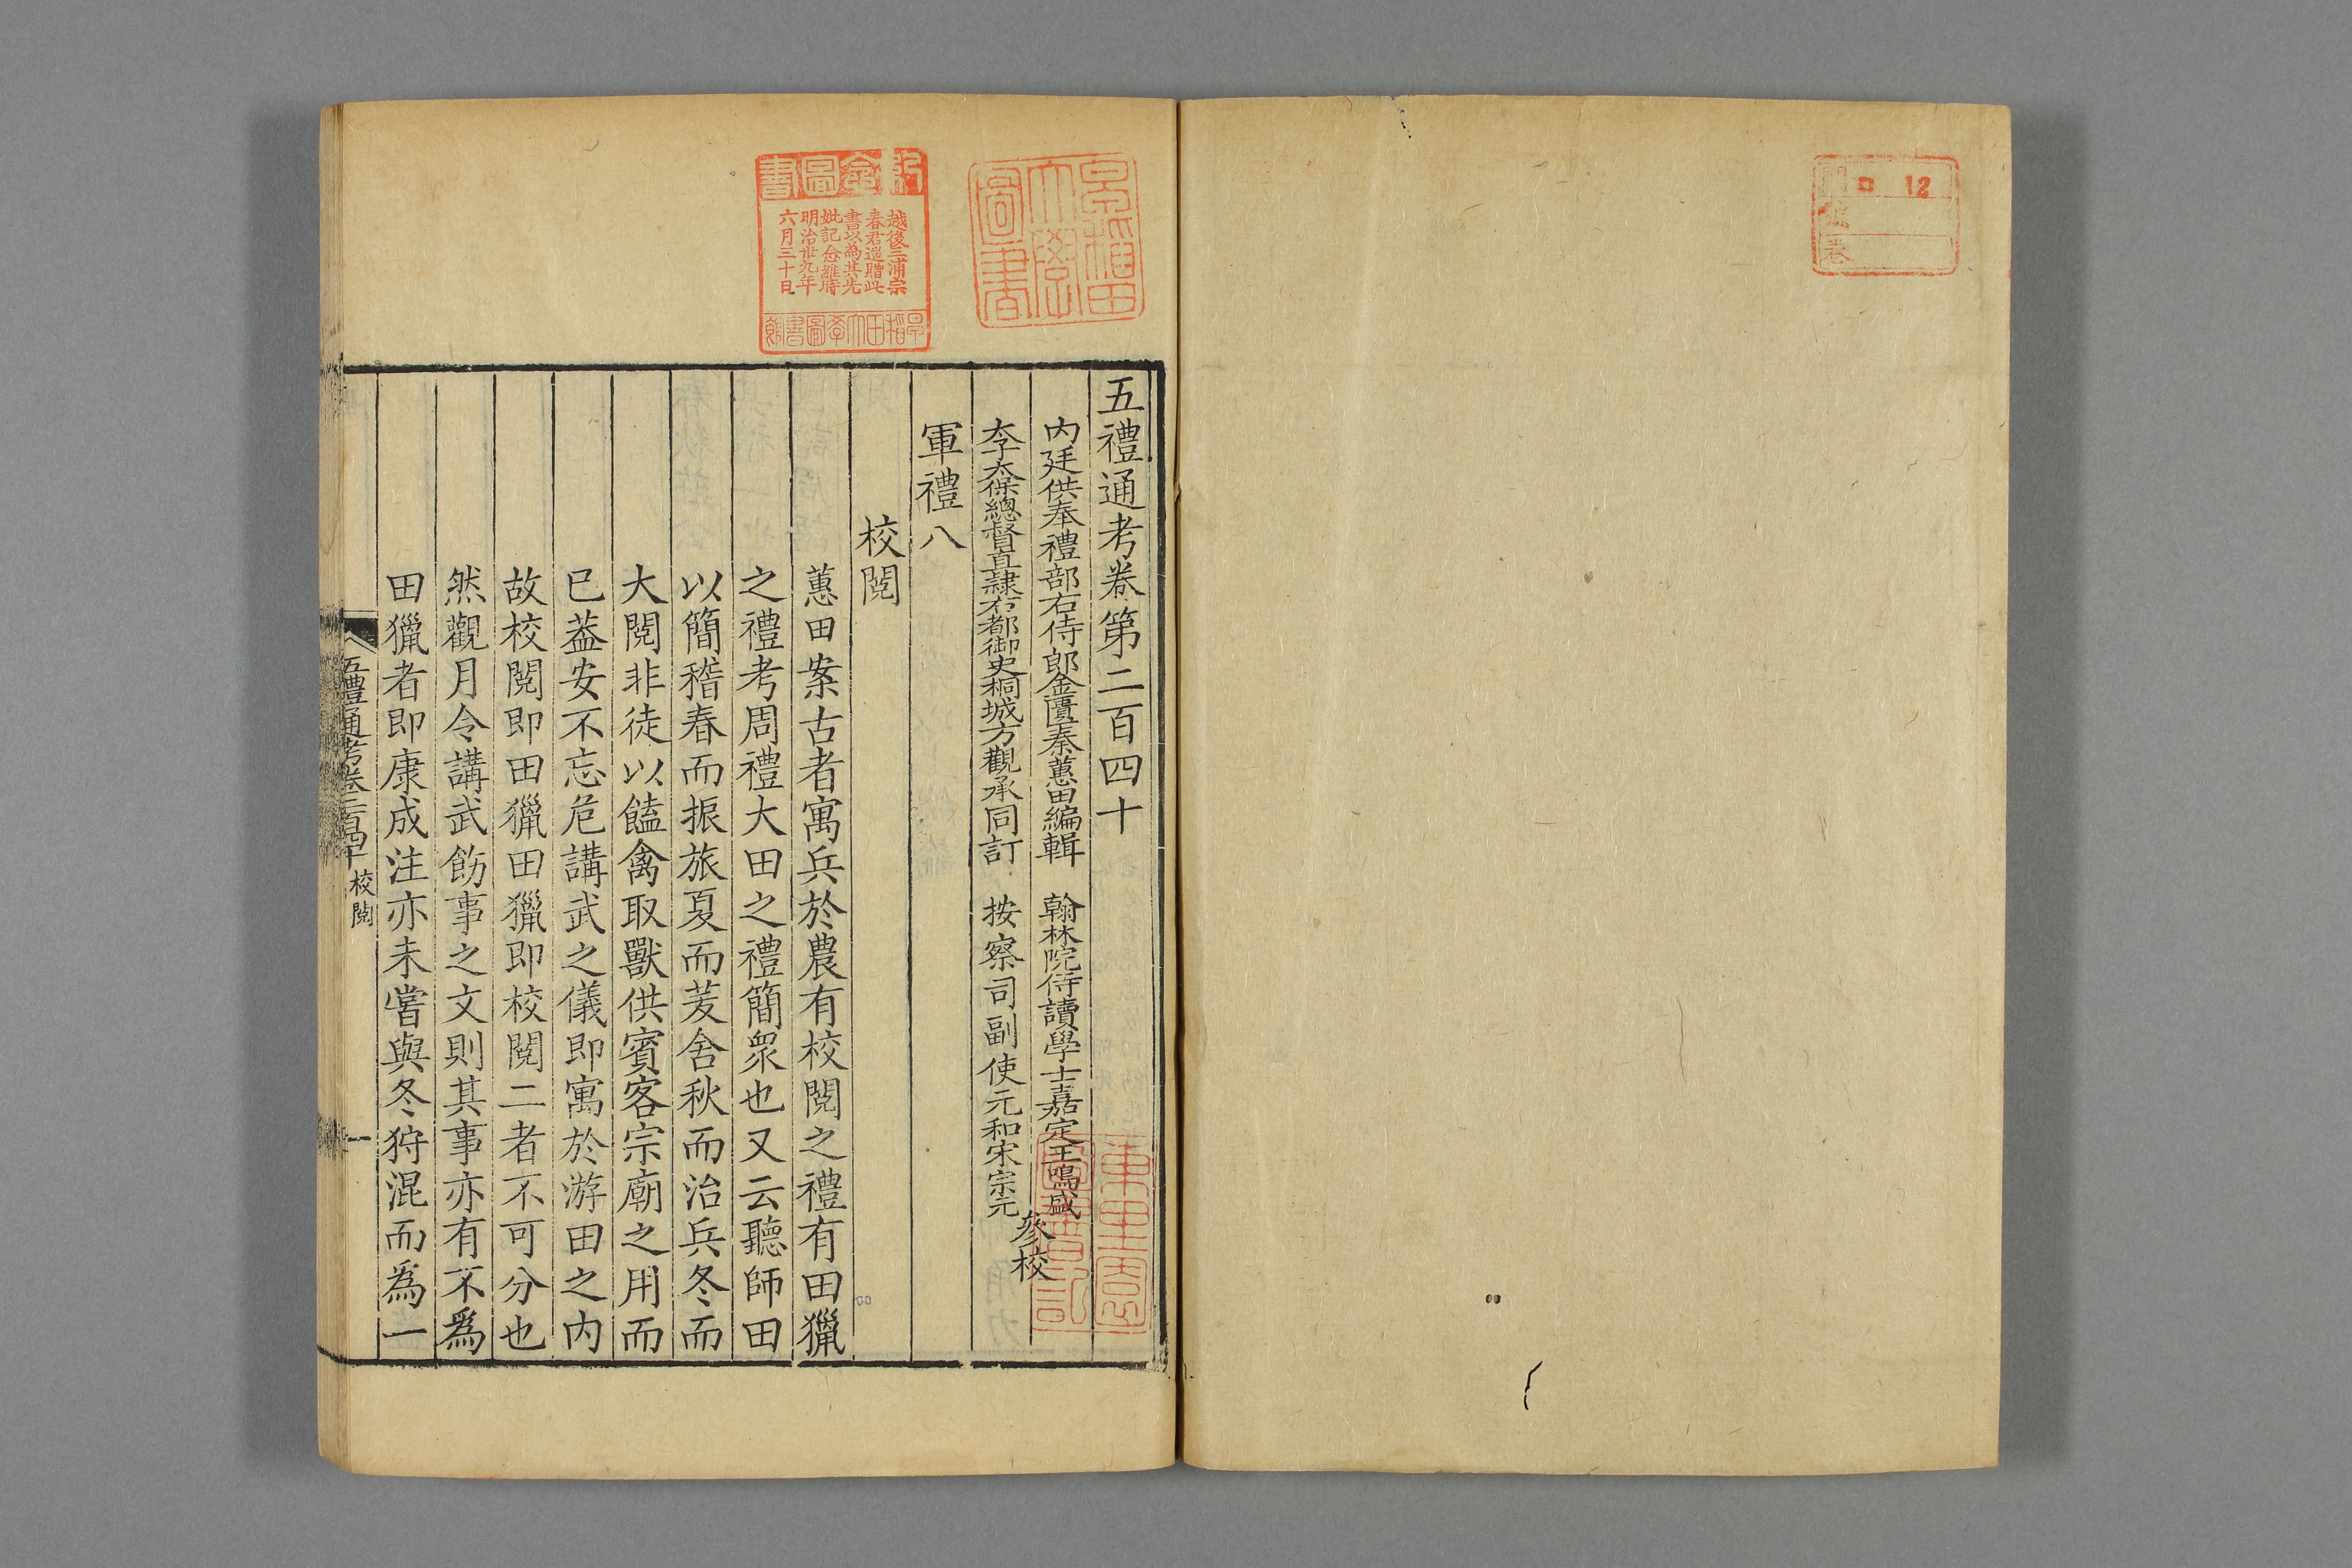 ロ 12
五禮通考卷第二百四十
內廷供奉禮部右侍郎金匱秦蕙田編輯 翰林院侍讀學士嘉定王鳴盛
李太保總督直隸右都御史桐城方觀承同訂 按察司副使元和宋宗元
參校
軍禮八
校閱
蕙田案古者寓兵於農有校閱之禮有田獵
之禮考周禮大田之禮簡眾也又云聽師田
以簡稽春而振旅夏而茇舍秋而治兵冬而
大閱非徒以饁禽取獸供賓客宗廟之用而
已葢安不忘危講武之儀即寓於游田之内
故校閱即田獵田獵即校閱二者不可分也
然觀月令講武飭事之文則其事亦有不爲
田獵者即康成注亦未嘗與冬狩混而爲一
五禮通考卷二百四十 校閱 一
早稻田大學圖書
紀念圖書
越後三浦宗
春君遥贈此
書以為其先
妣記念離時
明治卅九年
六月三十日
早稻田大學圖書館